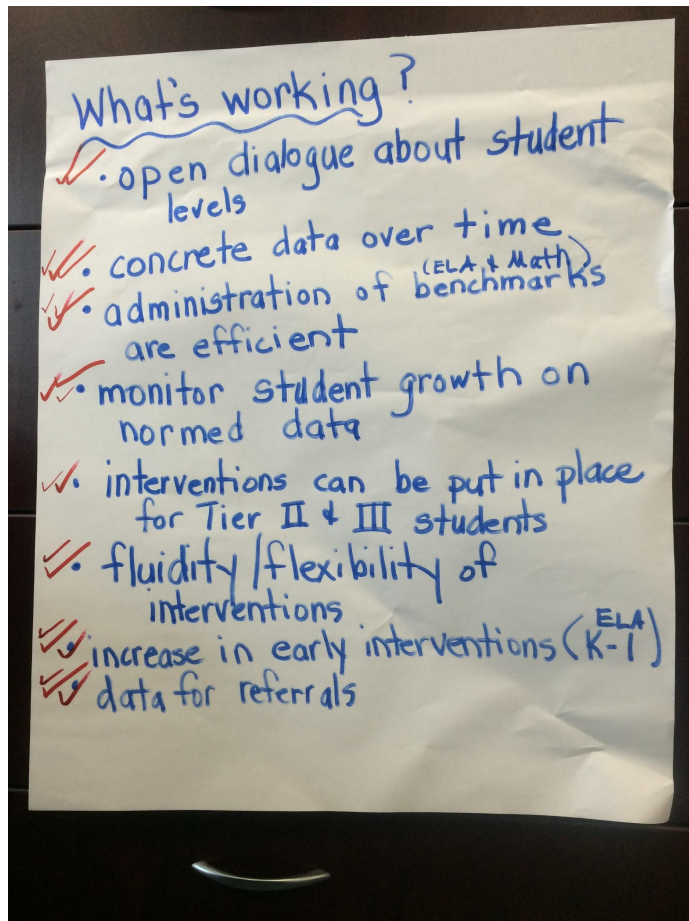 What's working?
• open dialogue about student
levels
• concrete data over time
(ELA & Math)
• administration of benchmarks
are efficient
• monitor student growth on
normed data
• interventions can be put in place
for Tier II & III students
• fluidity/flexibility of
interventions
ELA
• increase in early interventions (K-1)
• data for referrals